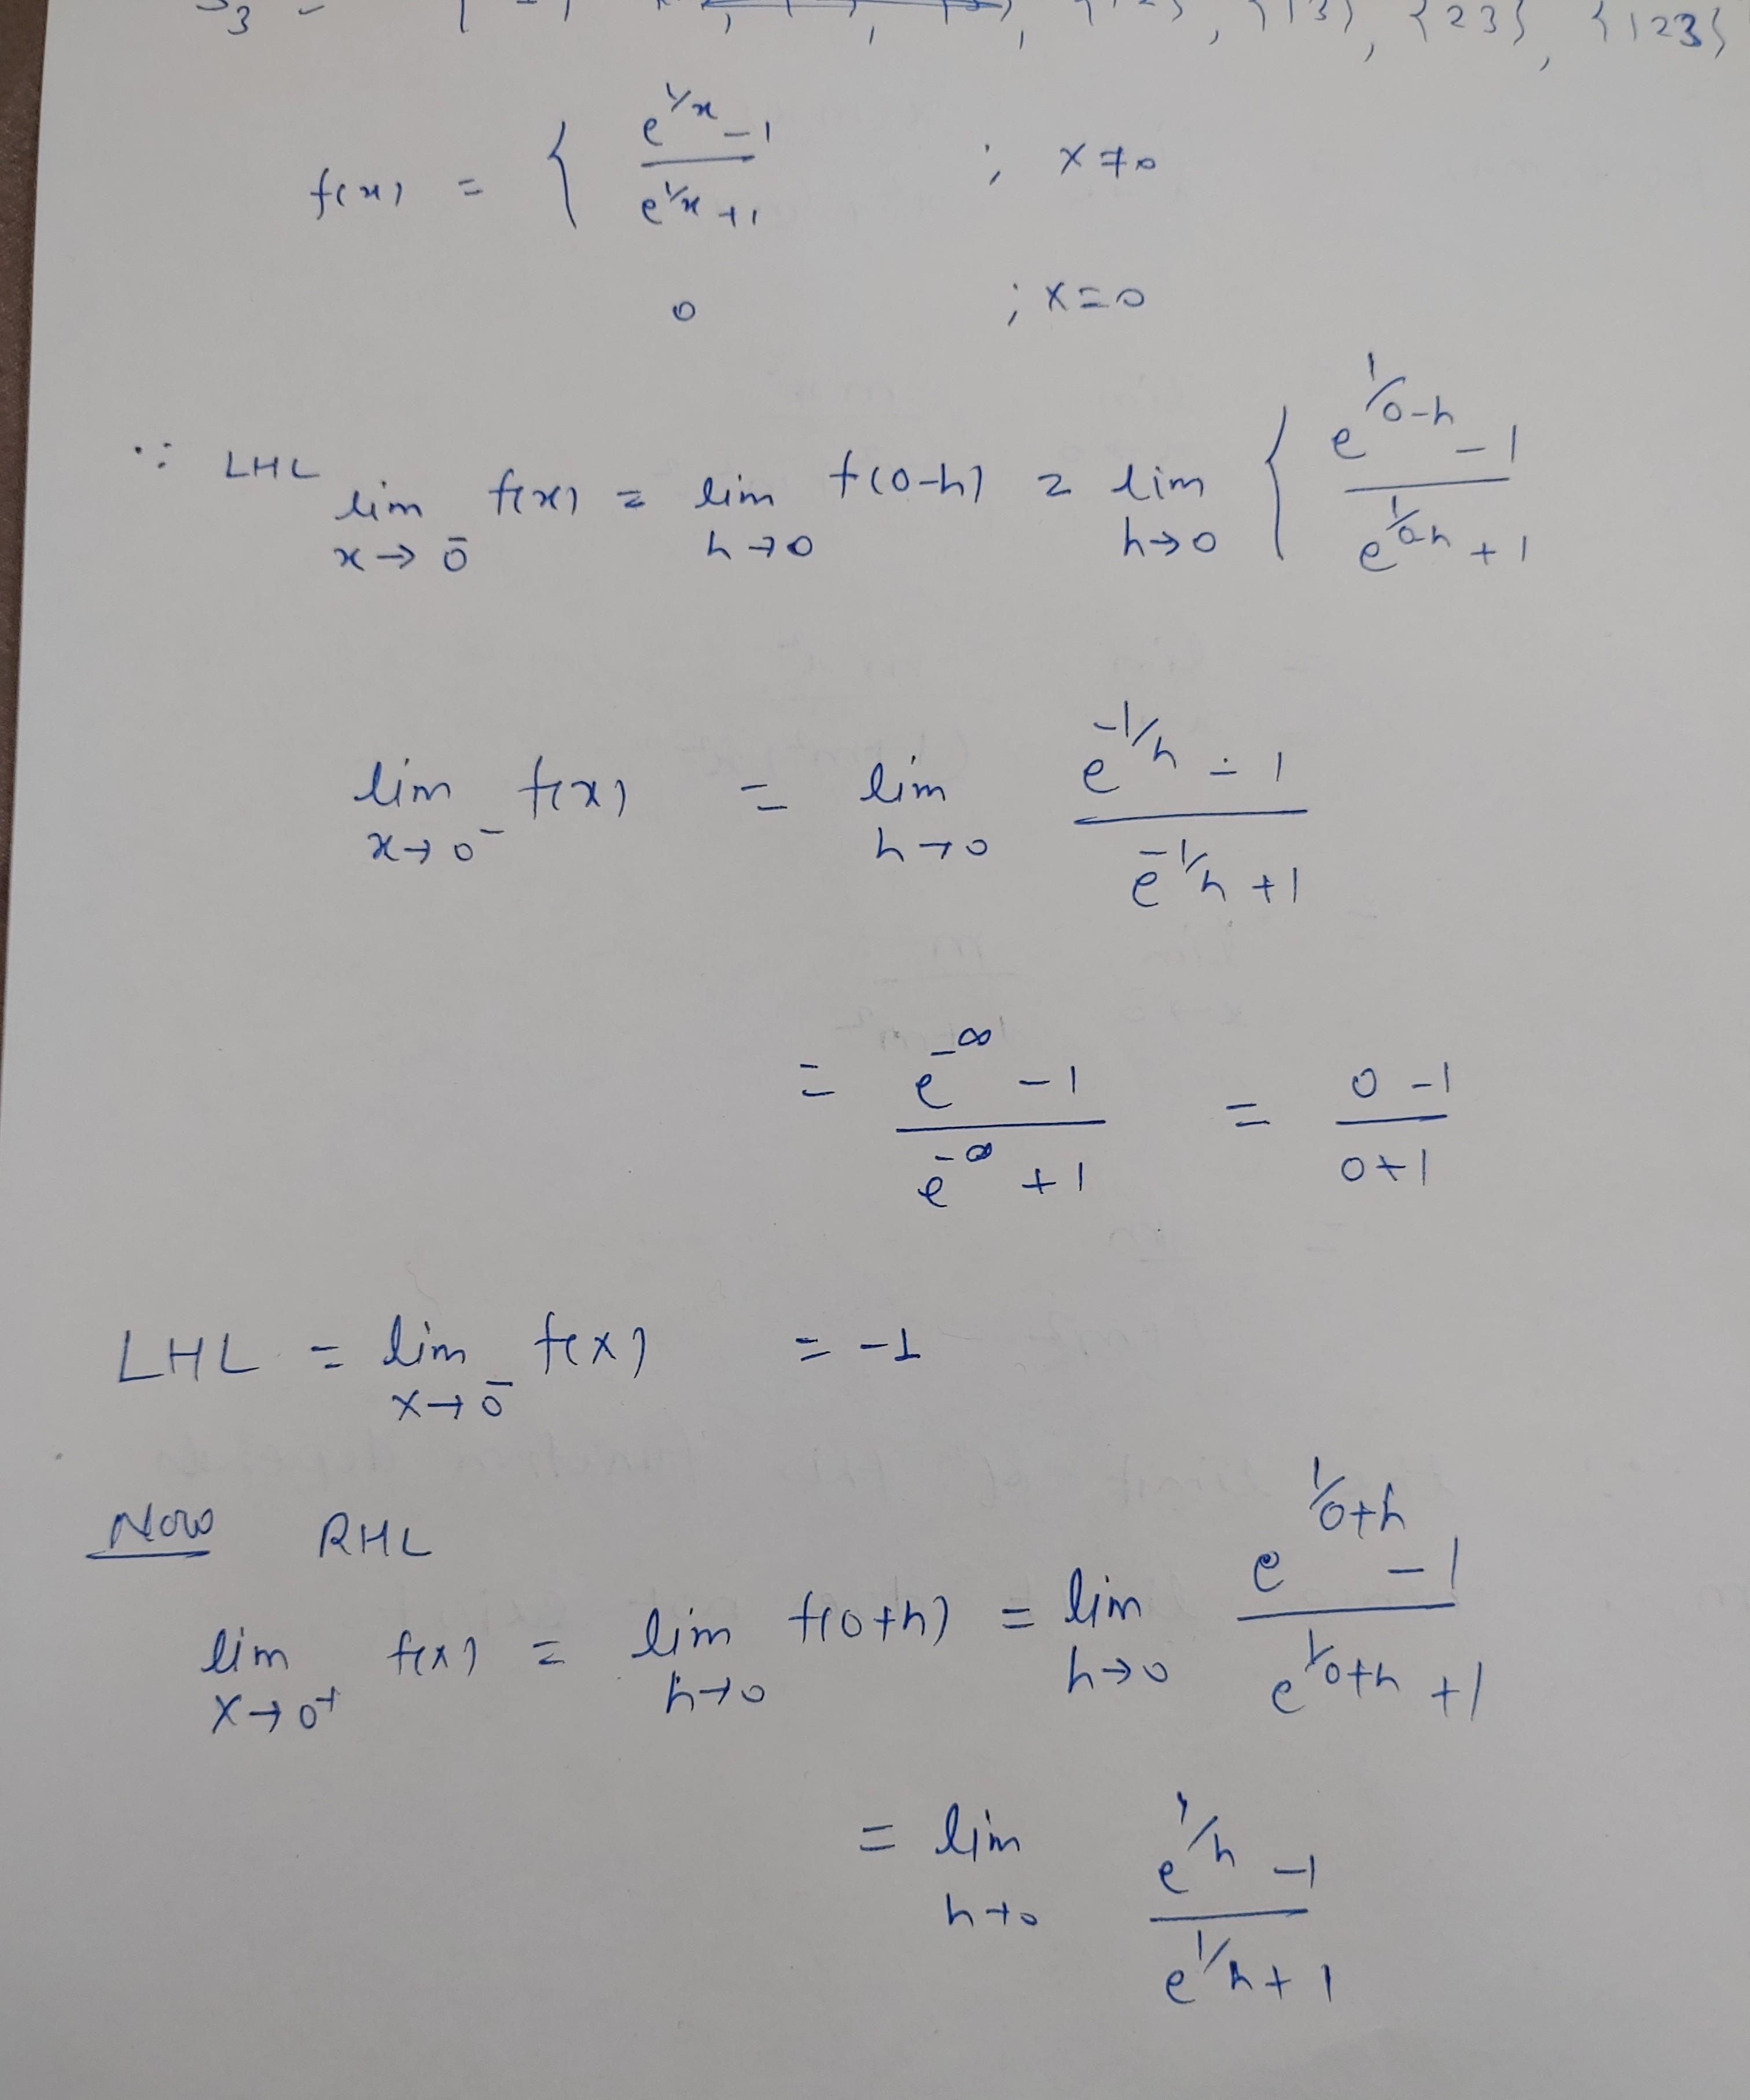 3 {23}, {123}
f(x) = { (e^{1/x} - 1)/(e^{1/x} + 1) ; x ≠ 0
0 ; x = 0
∵ LHL lim_{x→0⁻} f(x) = lim_{h→0} f(0-h) = lim_{h→0} { (e^{1/0-h} - 1)/(e^{1/0-h} + 1)
lim_{x→0⁻} f(x) = lim_{h→0} (e^{-1/h} - 1)/(e^{-1/h} + 1)
= (e^{-∞} - 1)/(e^{-∞} + 1) = (0 - 1)/(0 + 1)
LHL = lim_{x→0⁻} f(x) = -1
Now RHL
lim_{x→0⁺} f(x) = lim_{h→0} f(0+h) = lim_{h→0} (e^{1/0+h} - 1)/(e^{1/0+h} + 1)
= lim_{h→0} (e^{1/h} - 1)/(e^{1/h} + 1)